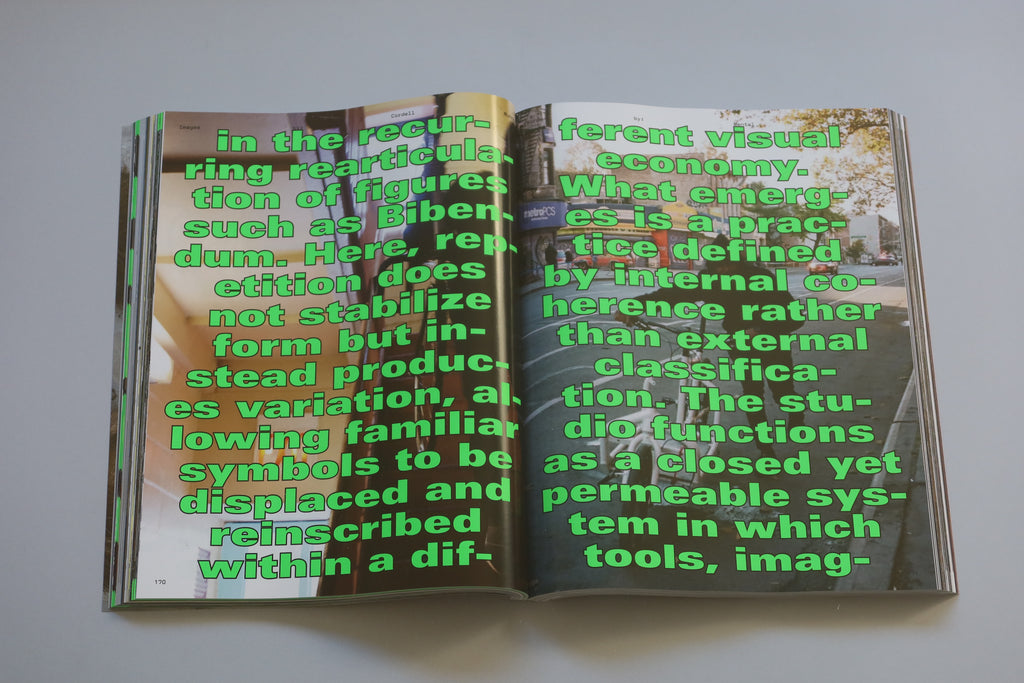 Images
Cordell
in the recur-
ring rearticula-
tion of figures
such as Biben-
dum. Here, rep-
etition does
not stabilize
form but in-
stead produc-
es variation, al-
lowing familiar
symbols to be
displaced and
reinscribed
within a dif-
170
by:
ferent visual
economy.
What emerg-
es is a prac-
tice defined
by internal co-
herence rather
than external
classifica-
tion. The stu-
dio functions
as a closed yet
permeable sys-
tem in which
tools, imag-
metroPCS